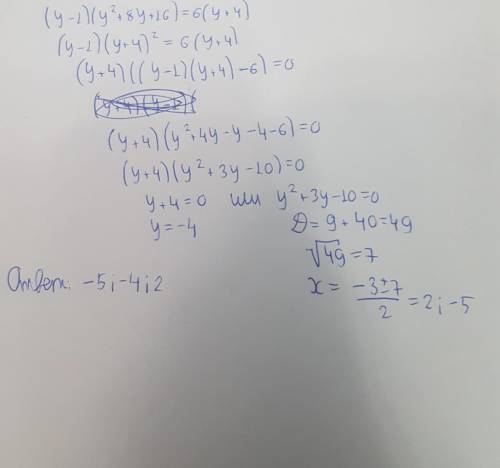 (y-1)(y²+8y+16)=6(y+4)
(y-1)(y+4)²=6(y+4)
(y+4)((y-1)(y+4)-6)=0
(y+4)(y²+4y-y-4-6)=0
(y+4)(y²+3y-10)=0
y+4=0 или y²+3y-10=0
y=-4 D=9+40=49
√49=7
x= (-3±7)/2 =2;-5
Ответ: -5;-4;2